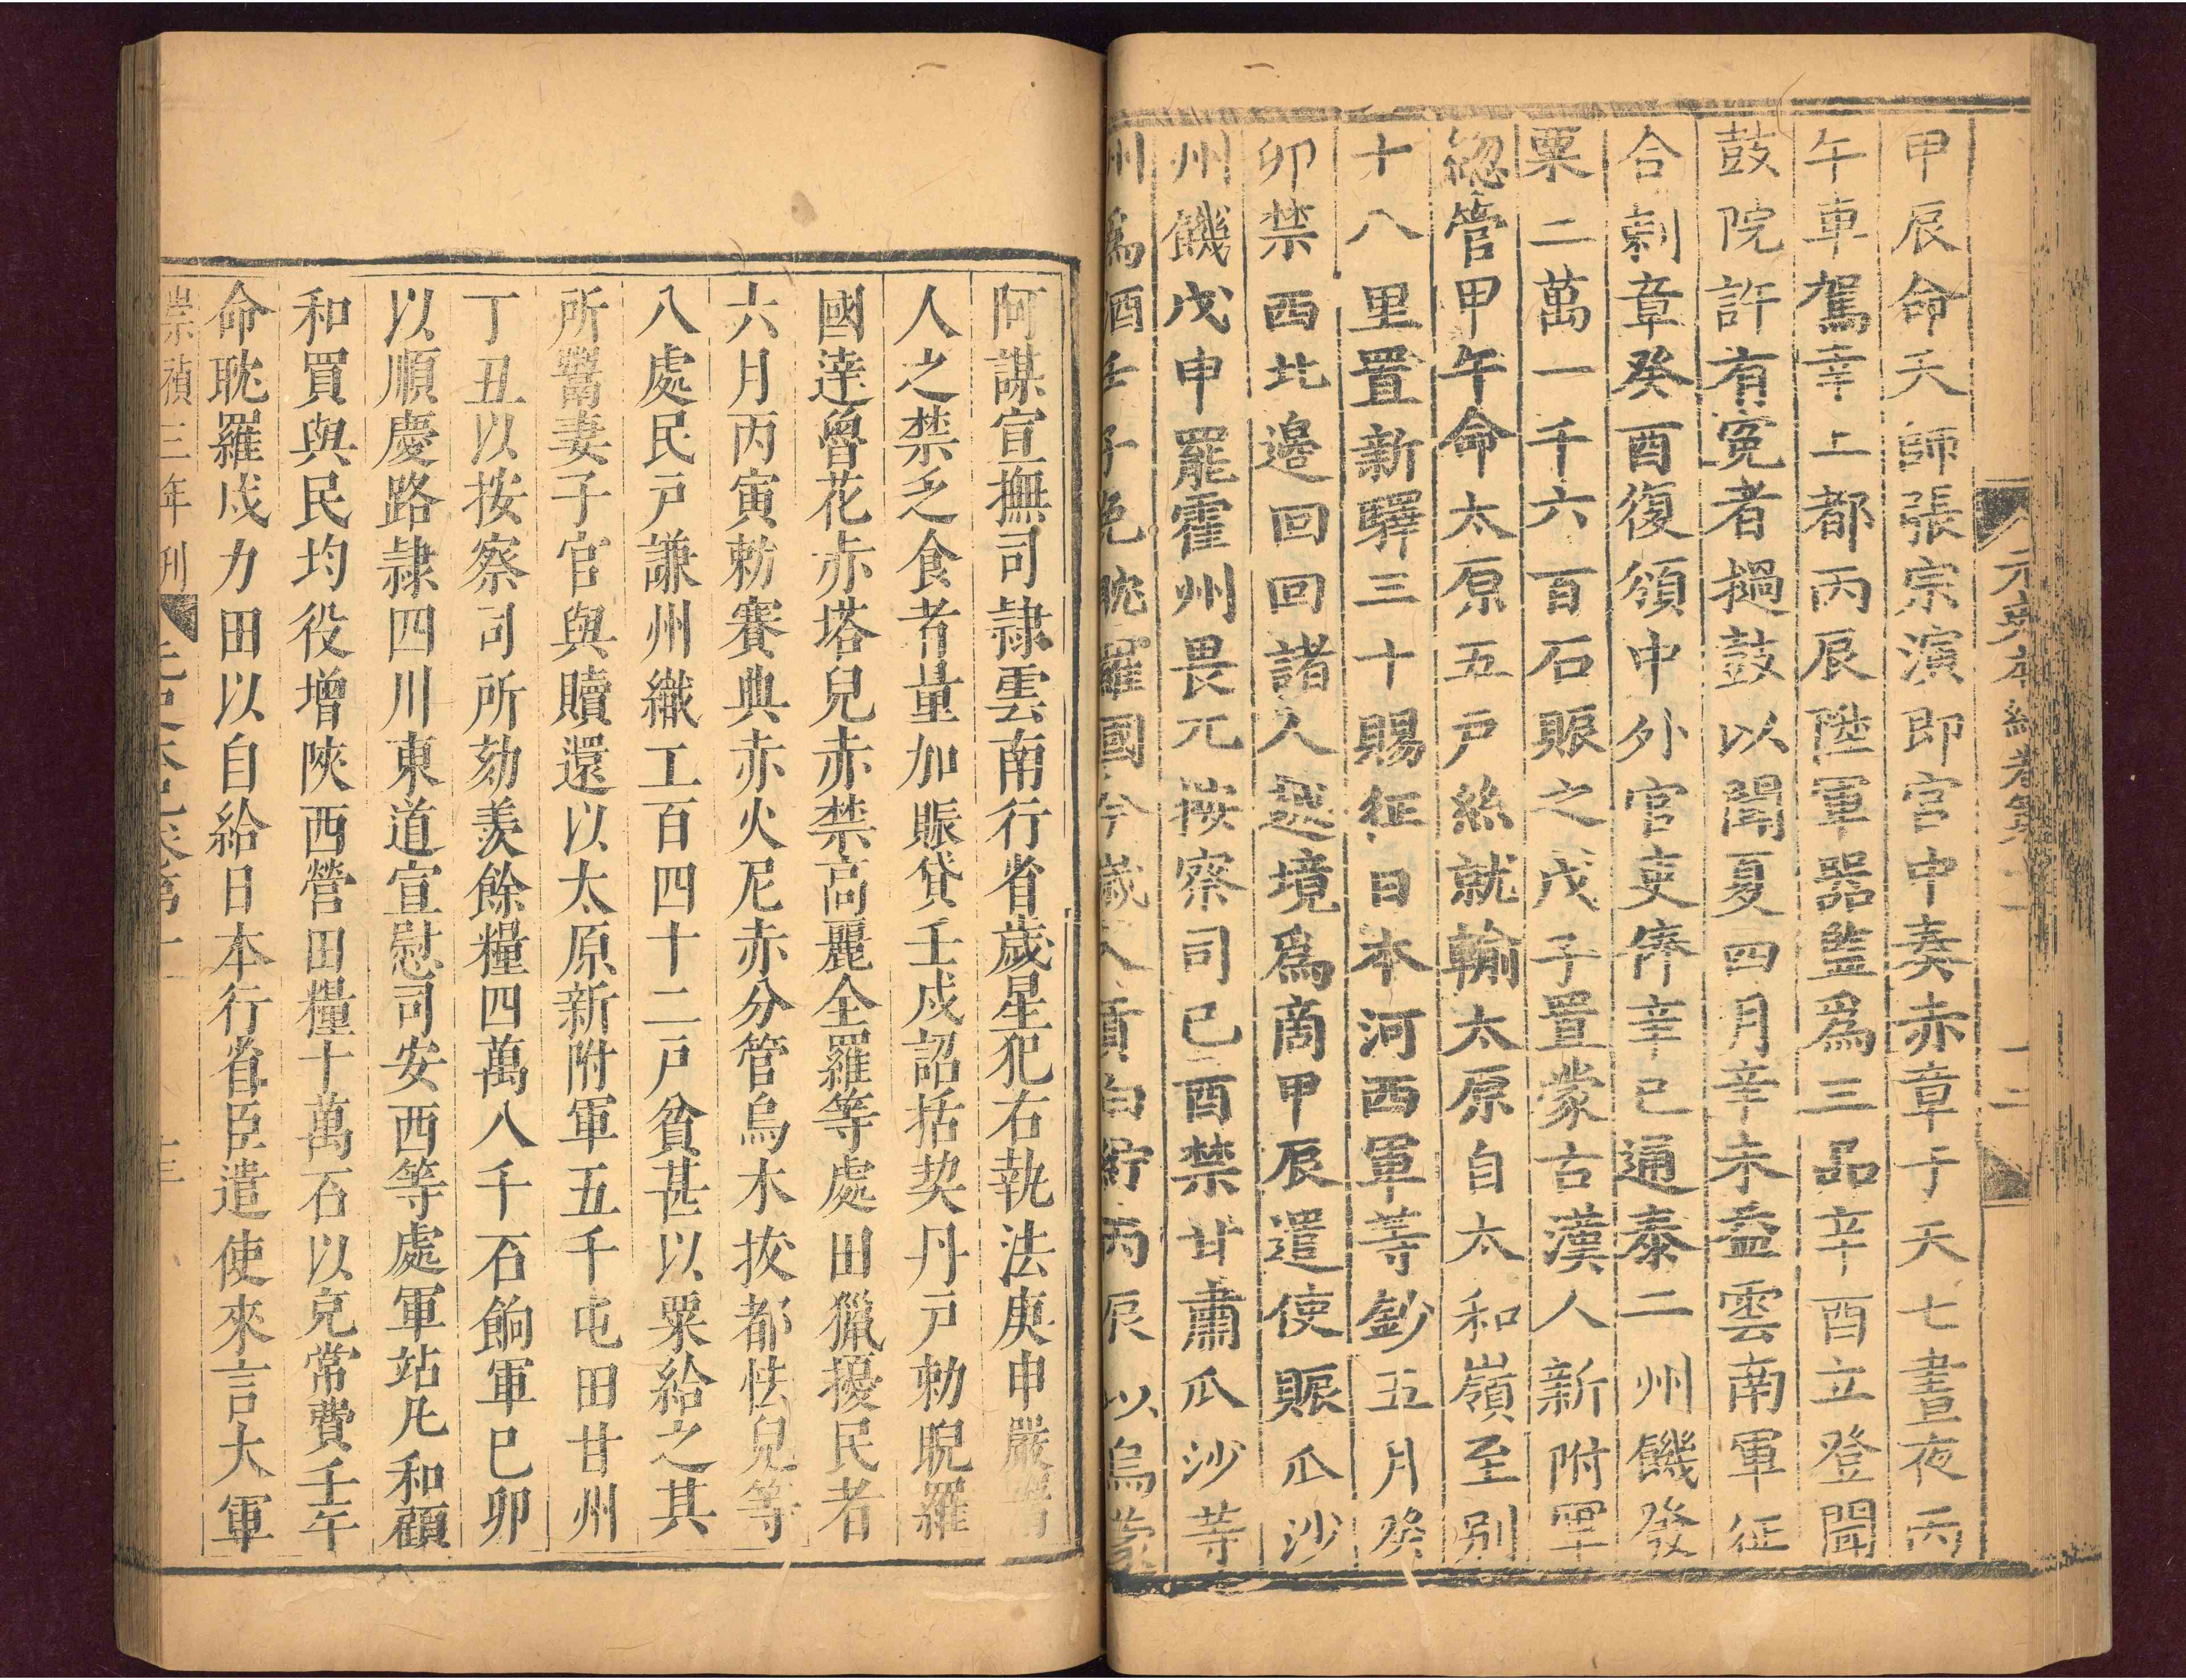 元史本紀卷第十一
十二
甲辰命天師張宗演即宮中奏赤章于天七晝夜丙
午車駕幸上都丙辰陞軍器監爲三品辛酉立登聞
鼓院許有冤者撾鼓以聞夏四月辛未益雲南軍征
合剌章癸酉復頒中外官吏俸辛巳通泰二州饑發
粟二萬一千六百石賑之戊子置蒙古漢人新附軍
總管甲午命太原五戶絲就輸太原自太和嶺至別
十八里置新驛三十賜征日本河西軍等鈔五月癸
卯禁西北邊回回諸人越境爲商甲辰遣使賑瓜沙
州饑戊申罷霍州畏兀按察司己酉禁甘肅瓜沙等
州爲酒壬子免耽羅國今歲入貢白紵丙辰以烏蒙
阿謀宣撫司隷雲南行省歲星犯右執法庚申嚴鬻
人之禁乏食者量加賑貸壬戌詔括契丹戶勅耽羅
國達魯花赤塔兒赤禁高麗全羅等處田獵擾民者
六月丙寅勅賽典赤火尼赤分管烏木拔都怯兒等
八處民戶謙州織工百四十二戶貧甚以粟給之其
所鬻妻子官與贖還以太原新附軍五千屯田甘州
丁丑以按察司所劾羨餘糧四萬八千石餉軍己卯
以順慶路隷四川東道宣慰司安西等處軍站凡和顧
和買與民均役增陜西營田糧十萬石以充常費壬午
命耽羅戍力田以自給日本行省臣遣使來言大軍
崇禎三年刊
元史本紀卷第十一